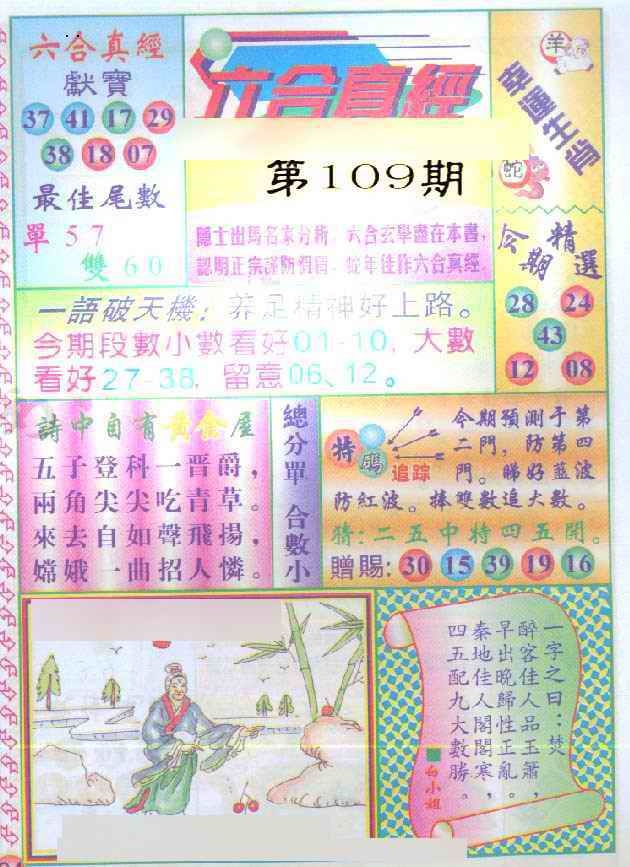 六合真經
獻寶
37 41 17 29
38 18 07
最佳尾數
單 5 7
雙 6 0
六合真經
第109期
隱士出馬名家分析,六合玄學盡在本書,
認明正宗謹防假冒,蛇年佳作六合真經
羊
幸運生肖
蛇
今期精選
28 24
43
12 08
一語破天機:养足精神好上路。
今期段數小數看好01-10,大數
看好27-38,留意06、12。
詩中自有黃金屋
五子登科一晋爵,
兩角尖尖吃青草。
來去自如聲飛揚,
嫦娥一曲招人憐。
總分單 合數小
特碼
追踪
今期預測于第
二門,防第四
門。睇好藍波
防紅波。捧雙數追大數。
猜:二五中特四五開。
贈賜:30 15 39 19 16
一字之曰:焚
醉客佳人品玉簫,
早出晚歸性正亂。
秦地佳人閣閣寒,
四五配九大數勝。
白小姐